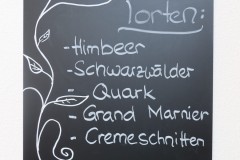 Torten:
-Himbeer
-Schwarzwälder
- Quark
- Grand Marnier
- Cremeschnitten